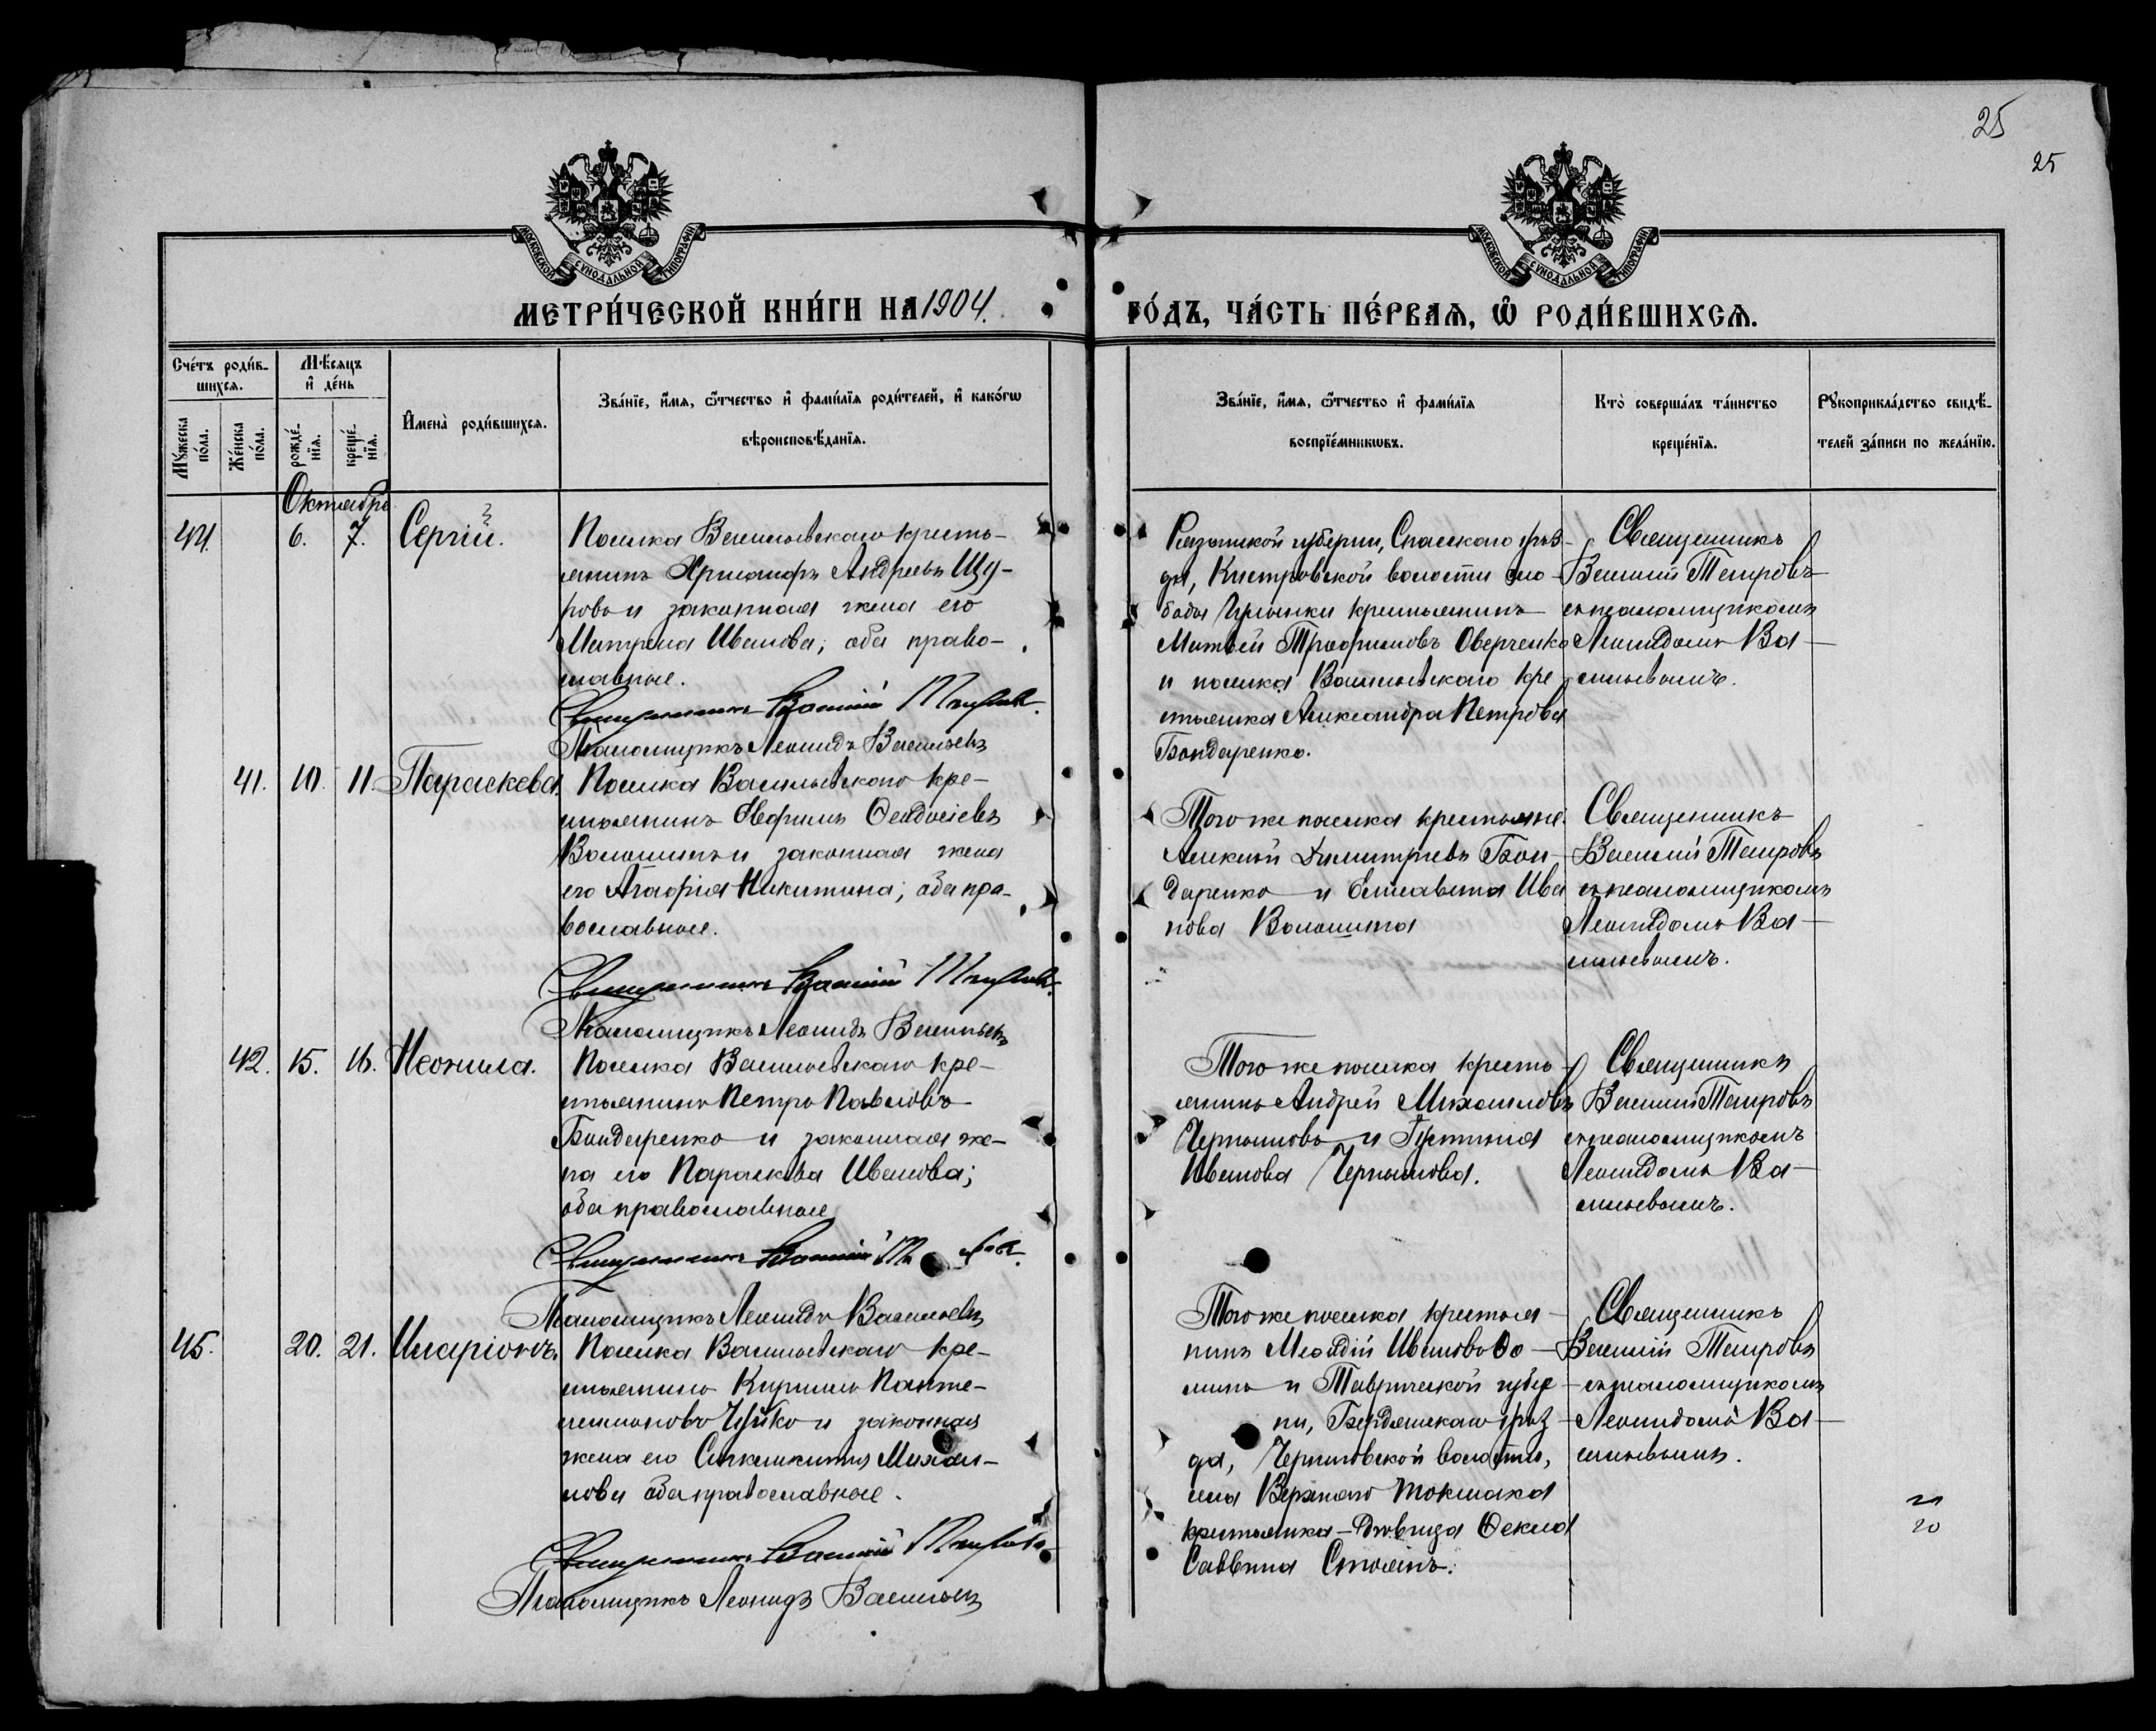 25
25
МОСКОВСКОЙ СѴНОДАЛЬНОЙ ТИПОГРАФІИ
МОСКОВСКОЙ СѴНОДАЛЬНОЙ ТИПОГРАФІИ
МЕТРИ́ЧЕСКОЙ КНИ́ГИ НА 1904.
ГО́ДЪ, ЧА́СТЬ ПЕ́РВАѦ, Ѡ҆ РОДИ́ВШИХСѦ.
Сче́тъ роди́в-
шихсѧ.
Мꙋ́жеска по́ла.
Же́нска по́ла.
Мѣ́сѧцъ
и҆ де́нь
рожде́-
нїѧ.
креще́-
нїѧ.
И҆мена̀ роди́вшихсѧ.
Зва́нїе, и҆́мѧ, ѻ҆́тчество и҆ фами́лїѧ роди́телей, и҆ како́гѡ
вѣроисповѣ́данїѧ.
Зва́нїе, и҆́мѧ, ѻ҆́тчество и҆ фами́лїѧ
воспрїе́мникѡвъ.
Кто̀ соверша́лъ та́инство
креще́нїѧ.
Рꙋкоприкла́дство свидѣ́-
телей за́писи по жела́нїю.
Октябрь
44.
6.
7.
Сергій.
Поселка Васильевскаго кресть-
янинъ Хрисанфъ Андреевъ Щу-
ровъ и законная жена его
Матрона Иванова; оба право-
славные.
Священникъ Василій Петровъ.
Псаломщикъ Леонидъ Васильевъ
Рязанской губерніи, Спасскаго уѣз-
да, Кистровской волости сло-
боды крестьянинъ
Матвей Трофимовъ Оверченко
и поселка Васильевскаго кре-
стьянка Александра Петрова
Бондаренко.
Священникъ
Василій Петровъ
съ псаломщикомъ
Леонидомъ Ва-
сильевымъ.
41.
10.
11.
Параскева.
Поселка Васильевскаго кре-
стьянинъ Ѳеодосіевъ
Волошинъ и законная жена
его Агафія Никитина; оба пра-
вославные.
Священникъ Василій Петровъ.
Псаломщикъ Леонидъ Васильевъ
Того же поселка крестьяне:
Алексѣй Димитріевъ Бон-
даренко и Елисавета Ива
нова Волошина
Священникъ
Василій Петровъ
съ псаломщикомъ
Леонидомъ Ва-
сильевымъ.
42.
15.
16.
Неонила.
Поселка Васильевскаго кре-
стьянинъ Петръ Павловъ
Бондаренко и законная же-
на его Параскева Иванова;
оба православные
Священникъ Василій
Псаломщикъ Леонидъ Васильевъ
Того же поселка кресть-
янинъ Андрей Михаиловъ
и Іустинія
Иванова
Священникъ
Василій Петровъ
съ псаломщикомъ
Леонидомъ Ва-
сильевымъ.
45.
20.
21.
Иларіонъ.
Поселка Васильевскаго кре-
стьянинъ Кириллъ Панте-
леимоновъ Чуйко и законная
жена его Синклитикія Михаи-
лова оба православные.
Священникъ Василій Петровъ
Псаломщикъ Леонидъ Васильевъ
Того же поселка крестья-
нинъ Ивановъ Ѳо-
минъ и Таврической губер-
ни, Бердянскаго уѣз-
да, Черниговской волости,
села Верхняго Токмака
крестьянка-дѣвица Ѳекла
Саввина
Священникъ
Василій Петровъ
съ псаломщикомъ
Леонидомъ Ва-
сильевымъ.
20